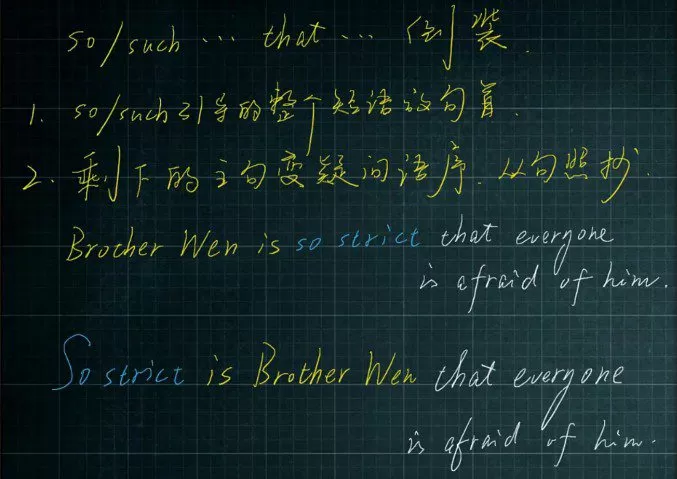 so/such … that … 倒装.
1. so/such引导的整个短语放句首.
2. 剩下的主句变疑问语序.从句照抄.
Brother Wen is so strict that everyone
is afraid of him.
So strict is Brother Wen that everyone
is afraid of him.